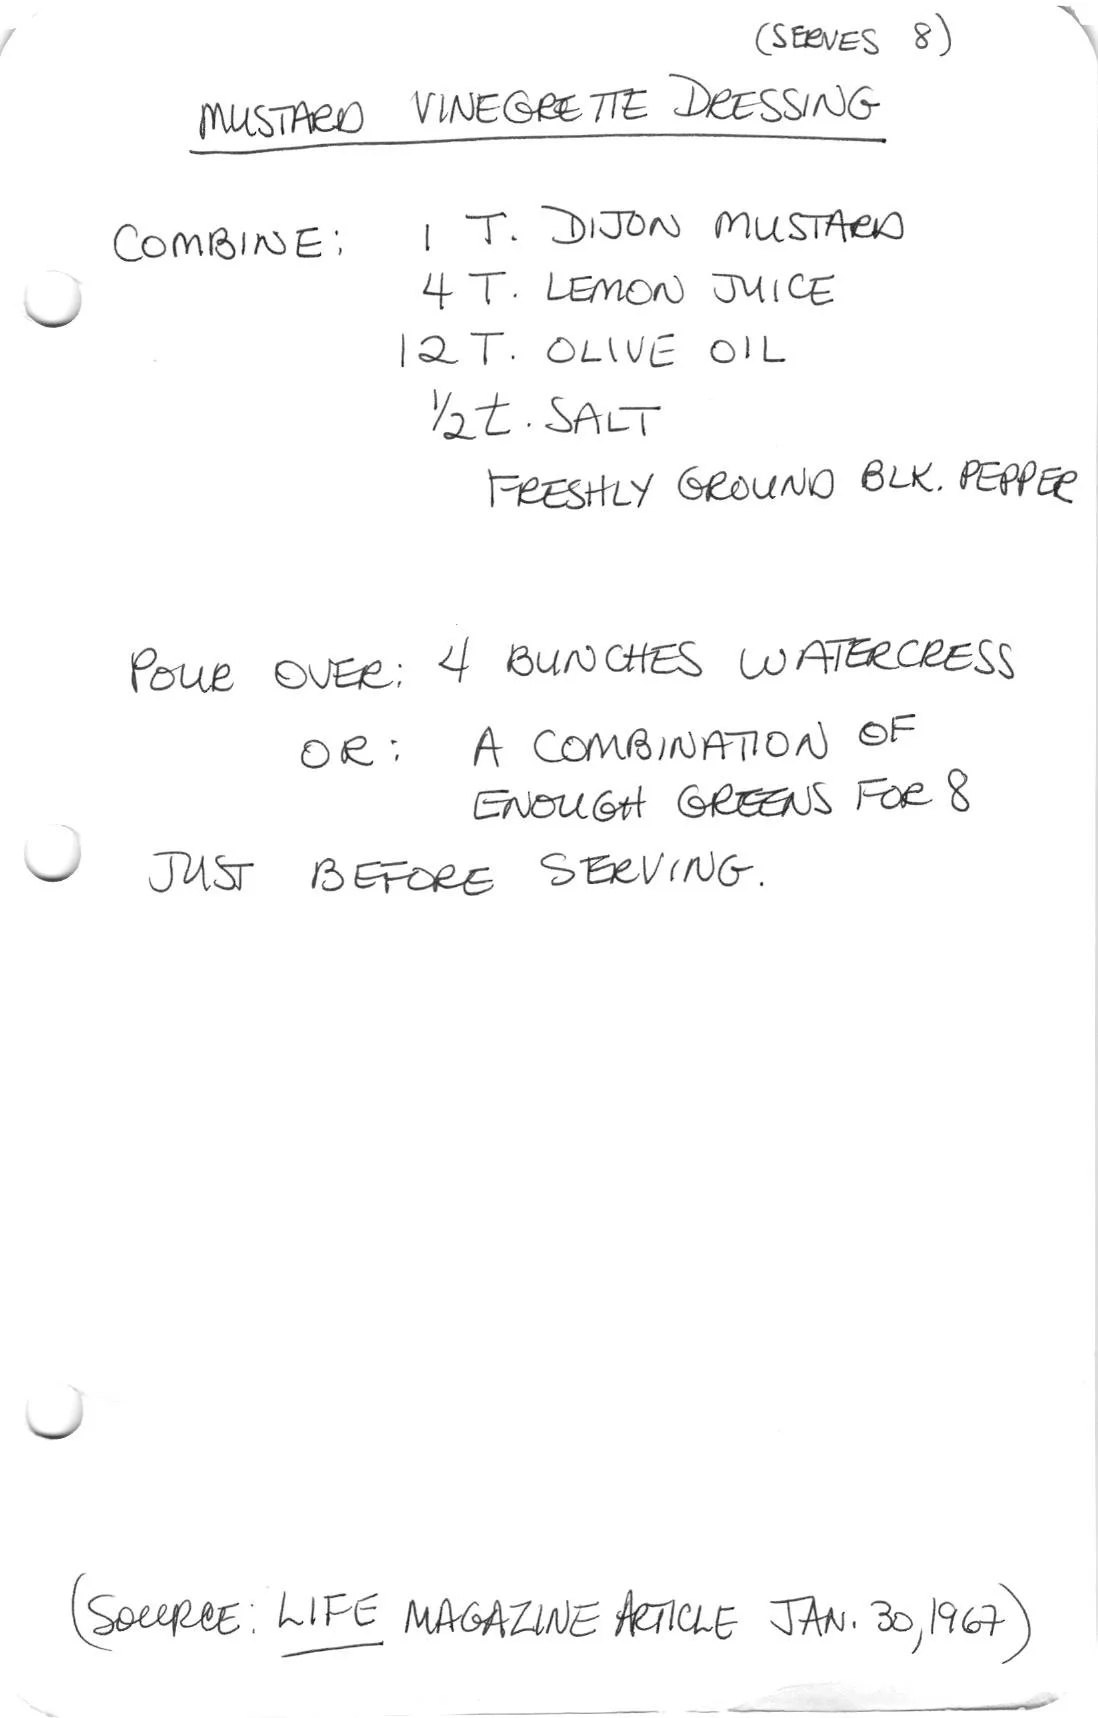 (SERVES 8)
MUSTARD VINEGRETTE DRESSING
COMBINE: 1 T. DIJON MUSTARD
4 T. LEMON JUICE
12 T. OLIVE OIL
1/2 t. SALT
FRESHLY GROUND BLK. PEPPER
POUR OVER: 4 BUNCHES WATERCRESS
OR: A COMBINATION OF
ENOUGH GREENS FOR 8
JUST BEFORE SERVING.
(SOURCE: LIFE MAGAZINE ARTICLE JAN. 30, 1967)